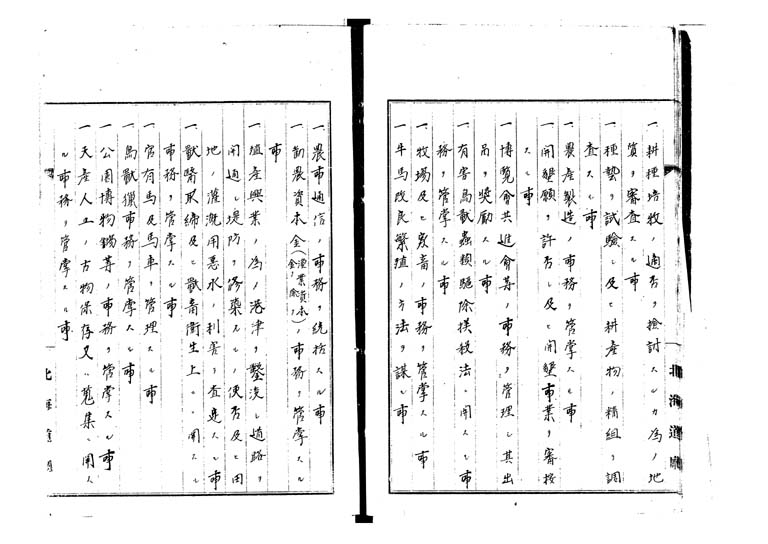 一耕種培牧ノ適否ヲ検討スルカ為ノ地
質ヲ審査スル事
一種藝ヲ試験シ及ヒ耕産物ノ精粗ヲ調
査スル事
一農産製造ノ事務ヲ管掌スル事
一開墾願ヲ許否シ及ヒ開墾事業ヲ審按
スル事
一博覧會共進會等ノ事務ヲ管理シ其出
品ヲ奨励スル事
一有害鳥獣蟲類駆除撲殺法ニ関スル事
務ヲ管掌スル事
一牧場及ヒ家畜ノ事務ヲ管掌スル事
一牛馬改良繁殖ノ方法ヲ謀ル事
北海道廳
一農事通信ノ事務ヲ統括スル事
一勧農資本金(漁業資本金ヲ除ク)ノ事務ヲ管掌スル
事
一殖産興業ノ為メ港津ヲ鑿浚シ道路ヲ
開通シ堤防ヲ修築スルノ便否及ヒ田
地ノ灌漑用悪水ノ利害ヲ査定スル事
一獣醫取締及ヒ獣畜衛生上ニ関スル
事務ヲ管掌スル事
一官有馬及馬車ヲ管理スル事
一鳥獣猟事務ヲ管掌スル事
一公園博物場等ノ事務ヲ管掌スル事
一天産人工ノ古物保存又ハ蒐集ニ関ス
ル事務ヲ管掌スル事
北海道廳